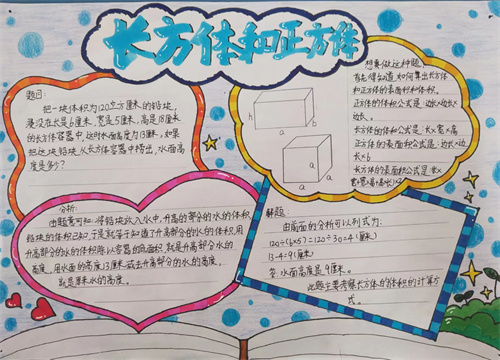 长方体和正方体
题目:
把一块体积为120立方厘米的铅块,
浸没在长是6厘米,宽是5厘米,高是18厘米
的长方体容器中,这时水面高度为13厘米,如果
把这块铅块从长方体容器中捞出,水面高
度是多少?
想要做这种题,
首先得知道如何算出长方体
和正方体的表面积和体积。
正方体的体积公式是:边长×边长×
边长。
长方体的体积公式是:长×宽×高
正方体的表面积公式是:边长×边
长×6
长方体的表面积公式是:(长×
h
b
a
a
a
a
分析:
由题意可知:将铅块放入水中,升高的部分的水的体积
铅块的体积已知,于是就等于知道了升高部分的水的体积,用
升高部分的水的体积除以容器的底面积,就是升高部分水的
高度,用水面的高度13厘米减去升高部分的水的高度,
就是原来水的高度。
解题:
由前面的分析可以列式为:
120÷(6×5)=120÷30=4(厘米)
13-4=9(厘米)
答:水面高度是9厘米。
此题主要考察长方体的体积的计算方
式。